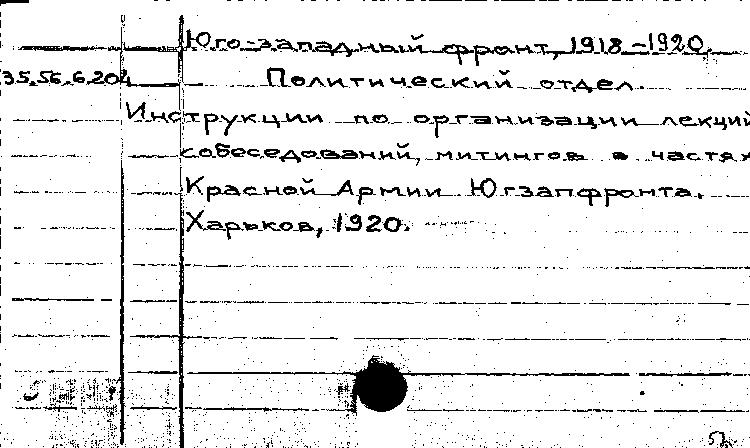 Юго-западный фронт, 1918-1920.
35.56.6.204
Политический отдел.
Инструкции по организации лекций
собеседований, митингов в частях
Красной Армии Югзапфронта.
Харьков, 1920.